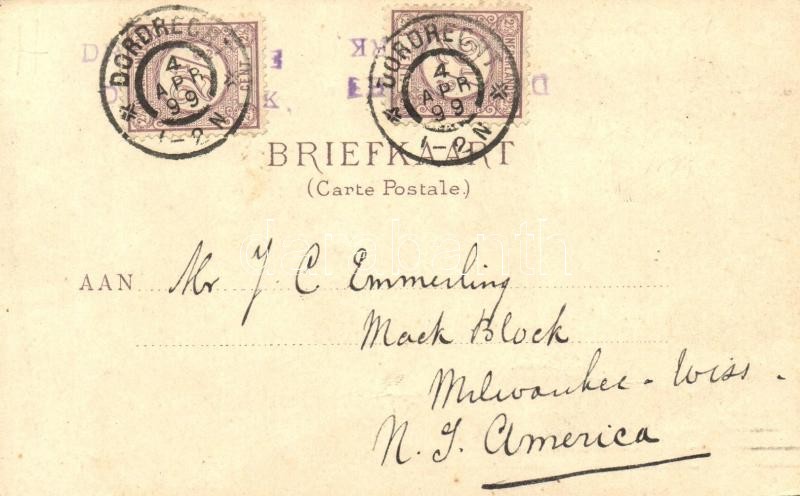 DORDRECHT
4
APR
99
1-2 N
CENT
DORDRECHT
4
APR
99
1-2 N
BRIEFKAART
(Carte Postale.)
AAN Mr J C Emmerling
Mack Block
Milwaukee - Wiss.
N. J. America